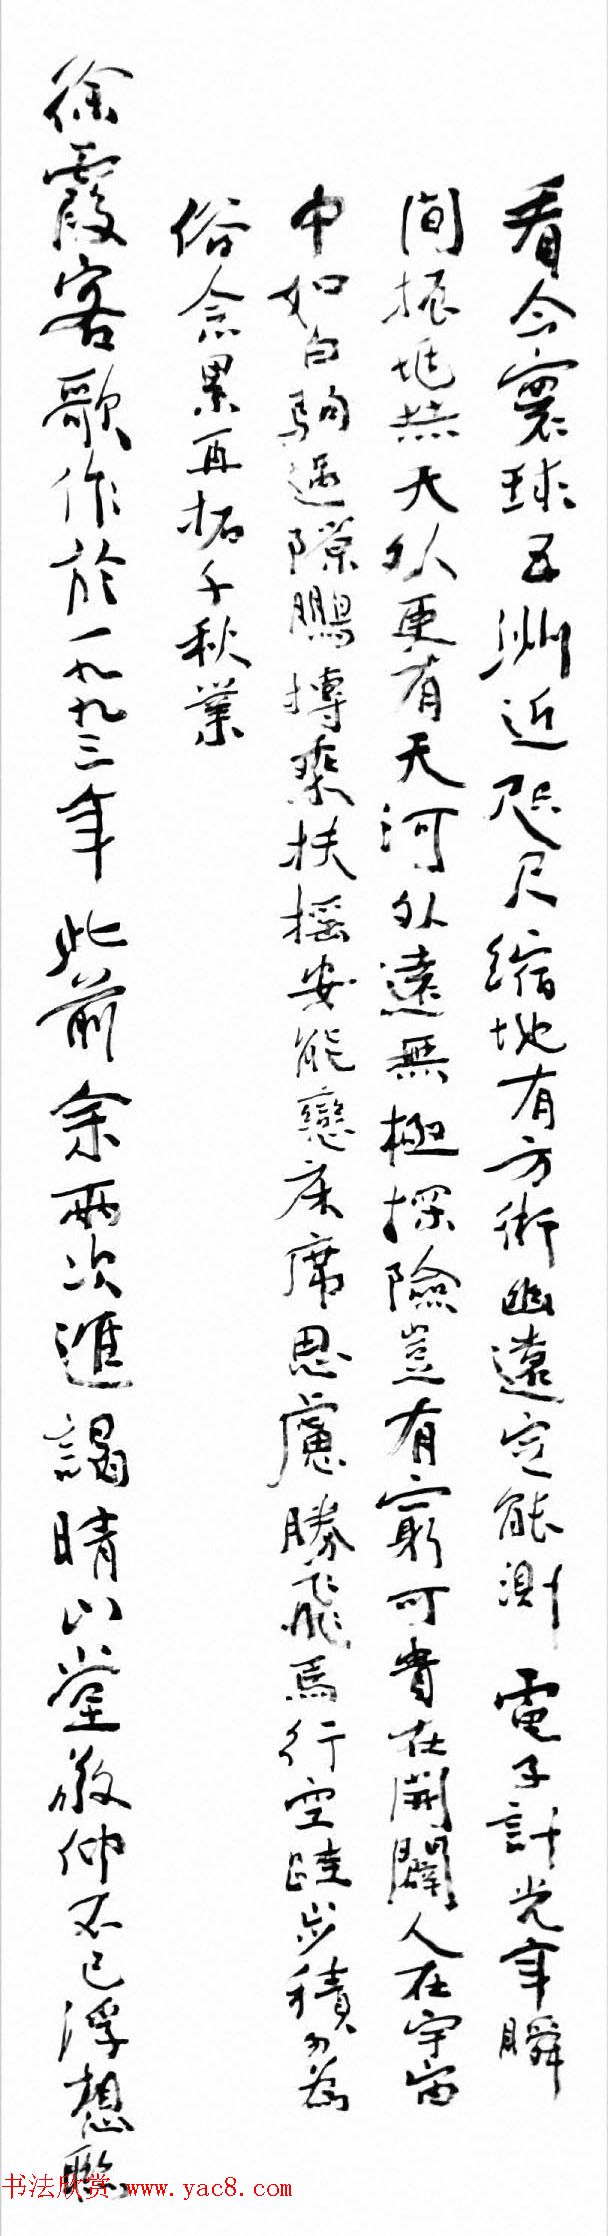 看今寰球五洲近咫尺縮地有方術幽遠定能測 電子計光年瞬
間地天外更有天河外遠無極探險豈有窮可貴在開闢人在宇宙
中如白駒過隙鵬搏乘扶搖安能戀床席思慮勝飛馬行空跬步積不為
俗念累再拓千秋業
徐霞客歌作於一九九三年 此前余兩次進謁晴山堂敬仰不已浮想聯
书法欣赏 www.yac8.com